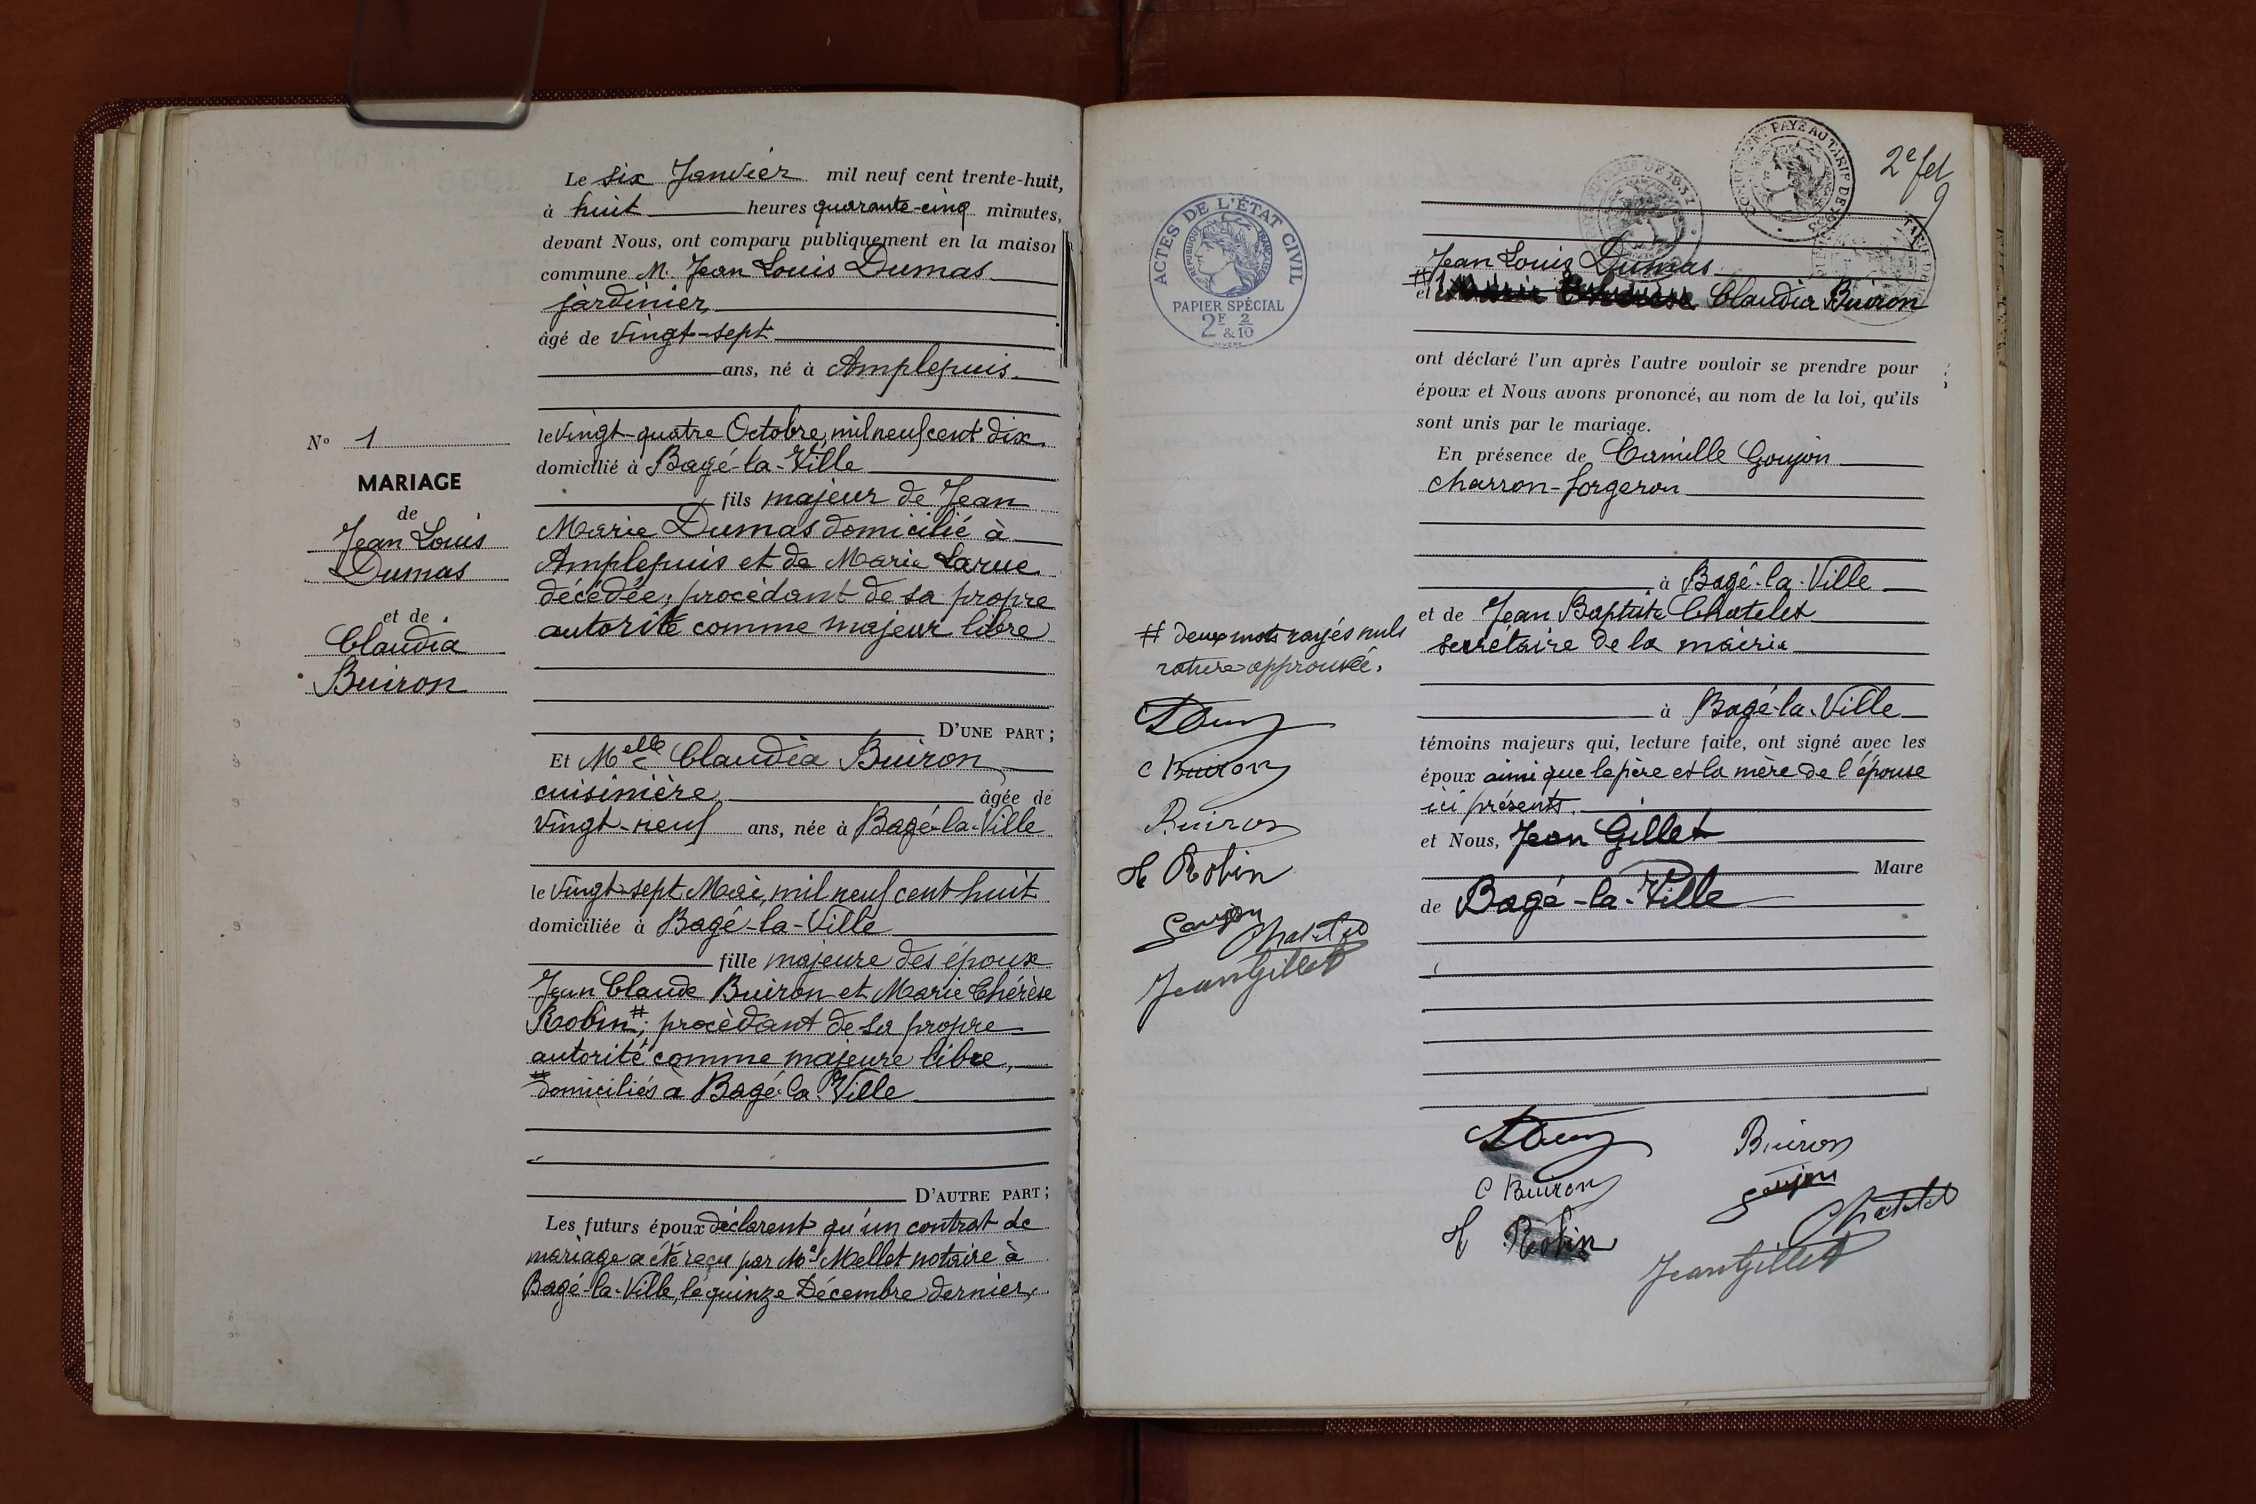 Le six Janvier mil neuf cent trente-huit,
à huit heures quarante-cinq minutes,
devant Nous, ont comparu publiquement en la maison
commune M. Jean Louis Dumas
jardinier,
âgé de vingt-sept
ans, né à Amplepuis
le vingt-quatre Octobre, mil neuf cent dix
domicilié à Bagé-la-Ville
fils majeur de Jean
Marie Dumas domicilié à
Amplepuis et de Marie Larue
décédée, procédant de sa propre
autorité comme majeur libre
D'UNE PART ;
Et Melle Claudia Buiron
cuisinière âgée de
vingt-neuf ans, née à Bagé-la-Ville
le vingt-sept Mai, mil neuf cent huit
domiciliée à Bagé-la-Ville
fille majeure des époux
Jean Claude Buiron et Marie Thérèse
Robin #; procédant de sa propre
autorité comme majeure libre,
# domiciliés à Bagé-la-Ville
D'AUTRE PART ;
Les futurs époux déclarent qu'un contrat de
mariage a été reçu par Me Mellet notaire à
Bagé-la-Ville, le quinze Décembre dernier,
N° 1
MARIAGE
de
Jean Louis
Dumas
et de
Claudia
Buiron
2e fet
9
ACTES DE L'ÉTAT CIVIL
RÉPUBLIQUE FRANÇAISE
PAPIER SPÉCIAL
2F & 2/10
PAYÉ AU TARIF DE
Jean Louis Dumas
# et Marie Thérèse Claudia Buiron
ont déclaré l'un après l'autre vouloir se prendre pour
époux et Nous avons prononcé, au nom de la loi, qu'ils
sont unis par le mariage.
En présence de Camille Goujon
charron-forgeron
à Bagé-la-Ville
et de Jean Baptiste Chatelet
secrétaire de la mairie
à Bagé-la-Ville
témoins majeurs qui, lecture faite, ont signé avec les
époux ainsi que le père et la mère de l'épouse
ici présents.
et Nous, Jean Gillet
Maire
de Bagé-la-Ville
# deux mots rayés nuls
rature approuvée.
C Buiron
Buiron
Robin
Goujon
Chatelet
Jean Gillet
Buiron
C Buiron
Goujon
Chatelet
Robin
Jean Gillet